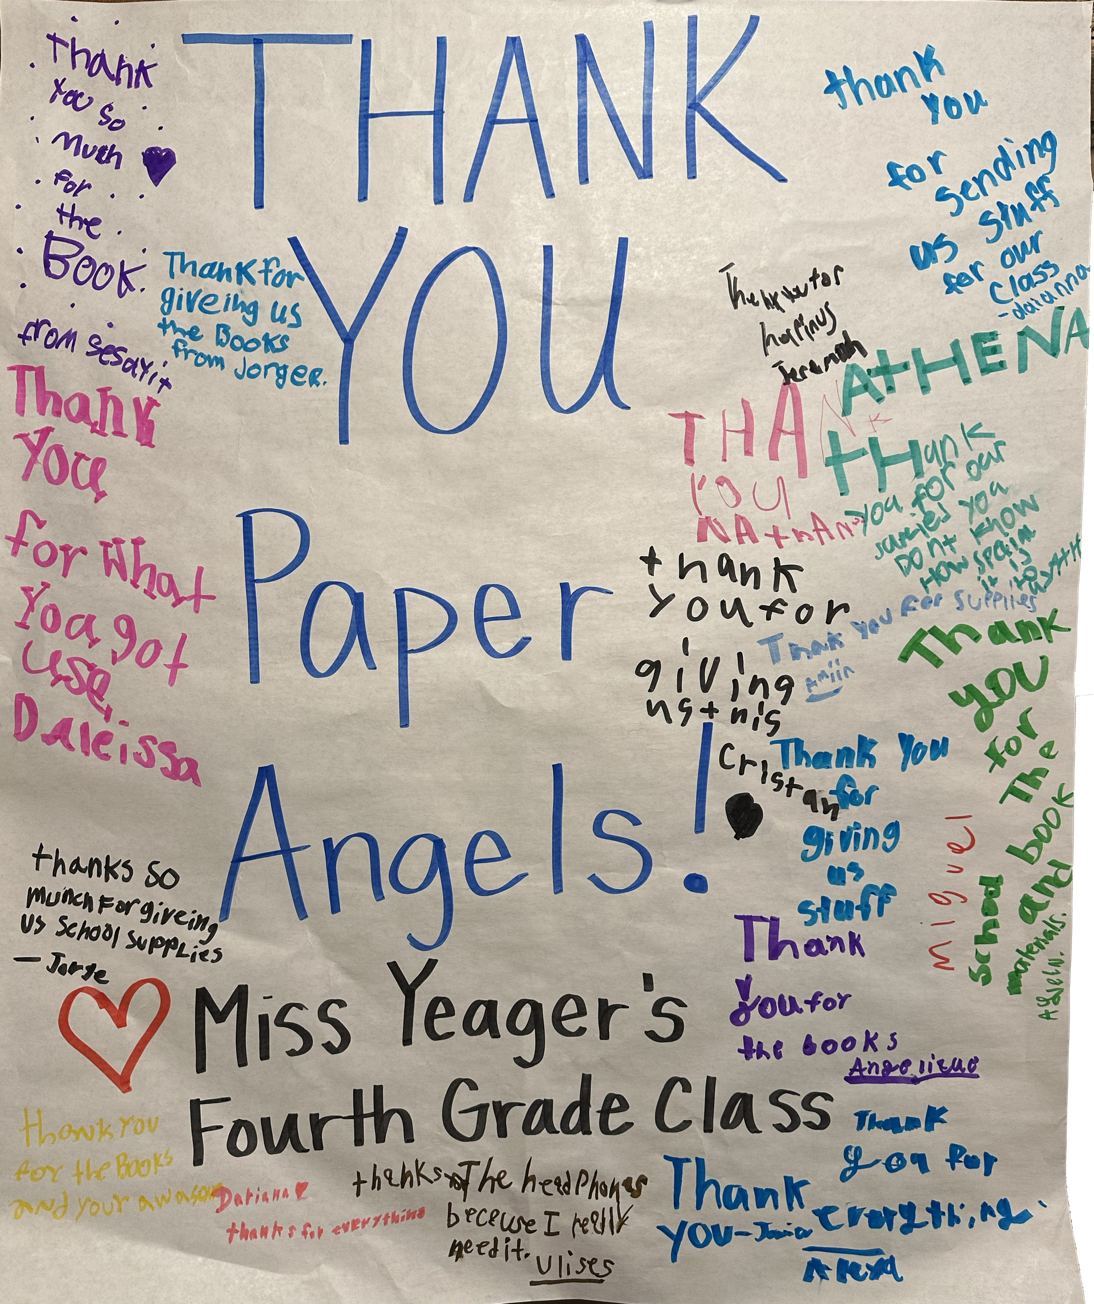 THANK
YOU
Paper
Angels!
Miss Yeager's
Fourth Grade Class
Thank
you so
much
for
the
BOOK.
from sesayit
Thank for
giveing us
the Books
from Jorger.
Thank
you
for What
Yoa got
use,
Daleissa
thanks so
munch for giveing
us School supplies
— Jorge
thank you
for the Books
and your
Dariana
thanks for everything
thanks The headphones
because I really
need it.
Ulises
Thank
you-
Thank
you for
everything.
Alexa
thank
you
for
sending
us stuff
for our
class
-daianna
hapinus
Jeramiah
ATHENA
THANK
YOU
NATHAN
THank
you for our
you
Dont know
How
it is
to
thank
you for
giving
us this
Cristan
Thank you for supplies
Amiir
Thank you
for
giving
us
stuff
Miguel
Thank
you
for
The
book
and
school
materials.
Thank
you for
the books
Angelique